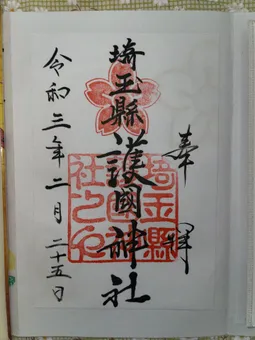 奉拝
埼玉縣護國神社
令和三年二月二十五日
埼玉縣護國神社之印